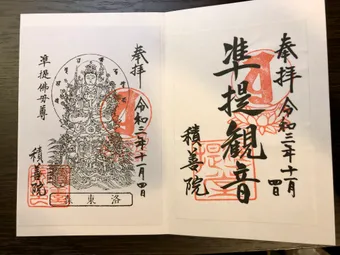 奉拝
令和三年十一月四日
准提観音
積善院
奉拝
令和三年十一月四日
洛東森
準提佛母尊
積善院